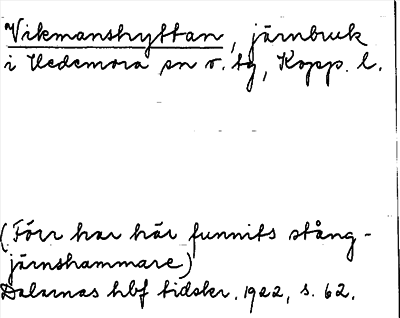 Vikmanshyttan, järnbruk
i Hedemora sn o. tg, Kopp. l.
(Förr har här funnits stång-
järnshammare)
Dalarnas hbf tidskr. 1922, s. 62.